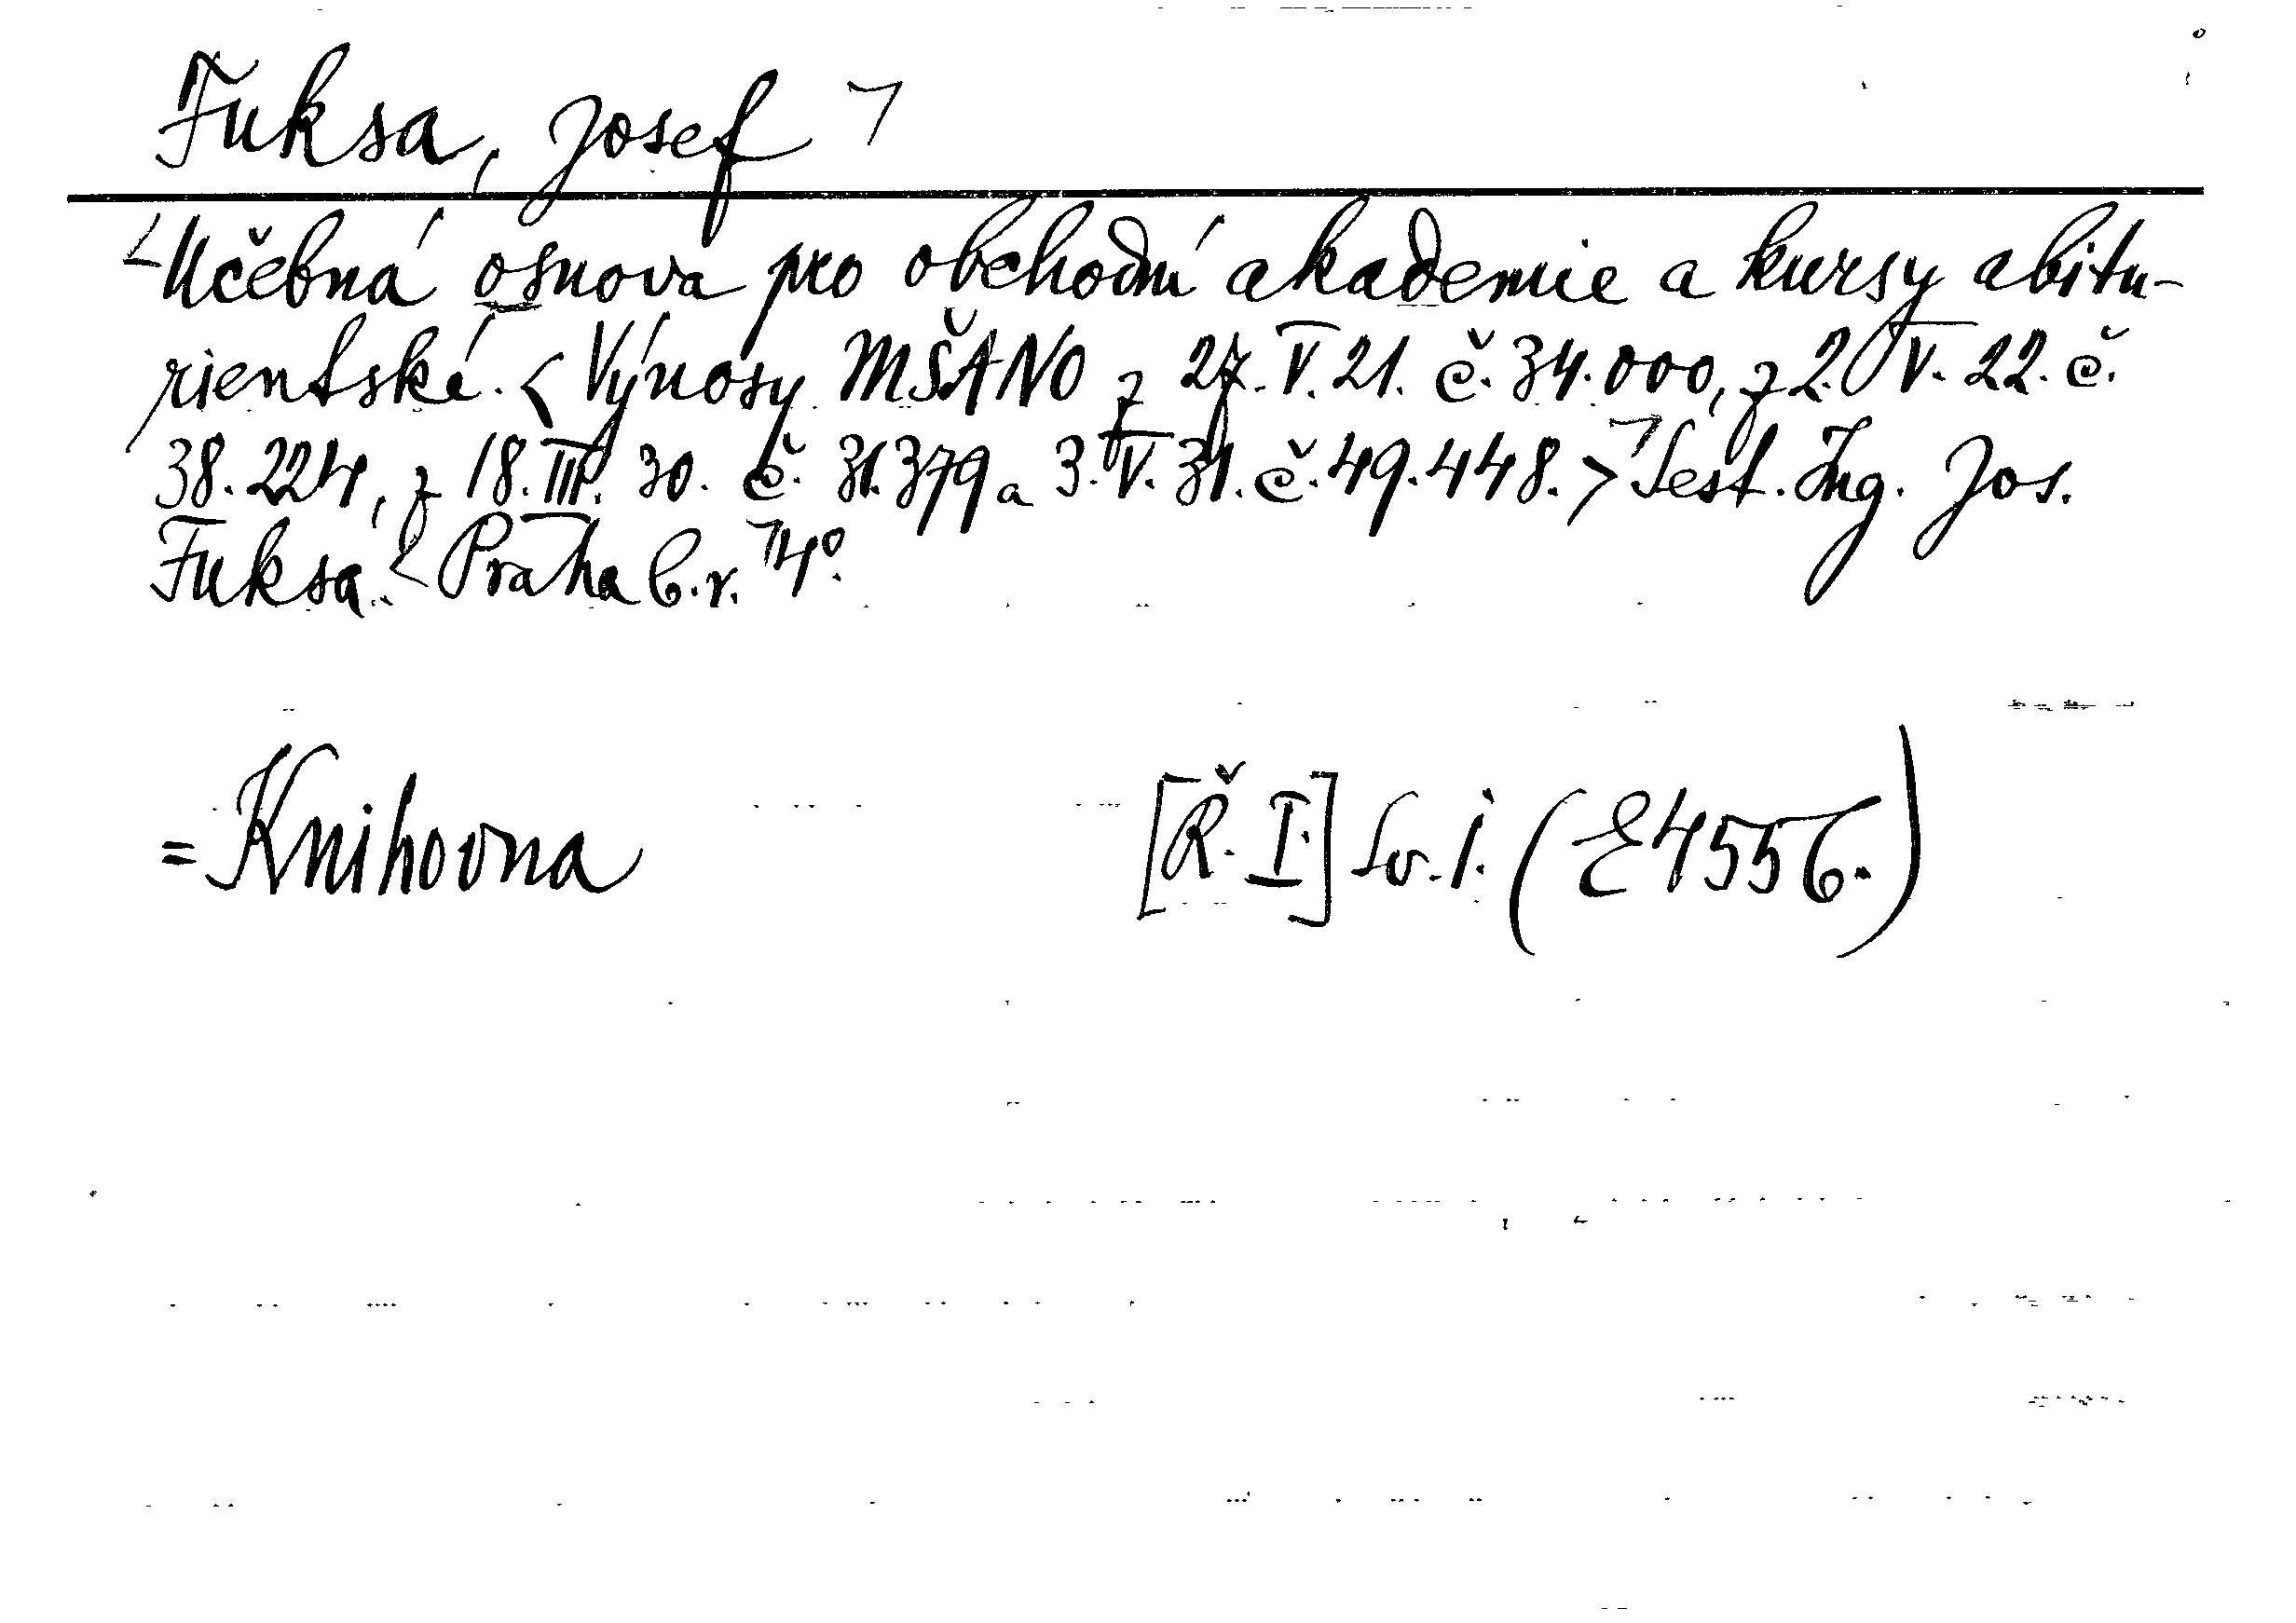 Fuksa, Josef ⌝
∟Učebná osnova pro obchodní akademie a kursy abitu-
rientské. < Výnosy MŠANO z 27. V. 21. č. 34.000, z 2. V. 22. č.
38.224, z 18. III. 30. č. 31.379 a 3. V. 31. č. 49.448. > ⌝ Sest. Ing. Jos.
Fuksa. ∟ Praha b. r. ⌝ 4°.
= Knihovna [Ř. I.] Sv. 1. (E 4556.)